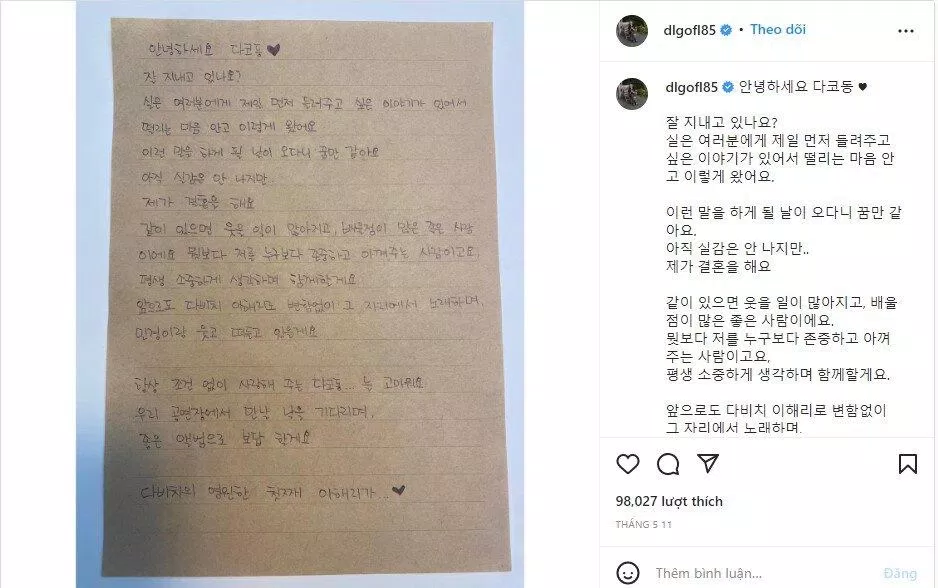 안녕하세요 다코동 ♥
잘 지내고 있나요?
실은 여러분에게 제일 먼저 들려주고 싶은 이야기가 있어서
떨리는 마음 안고 이렇게 왔어요
이런 말을 하게 될 날이 오다니 꿈만 같아요
아직 실감은 안 나지만..
제가 결혼을 해요
같이 있으면 웃을 일이 많아지고, 배울점이 많은 좋은 사람
이에요 뭣보다 저를 누구보다 존중하고 아껴주는 사람이고요,
평생 소중하게 생각하며 함께할게요
앞으로도 다비치 이해리로 변함없이 그 자리에서 노래하며,
민경이랑 웃고 떠들고 있을게요
항상 조건 없이 사랑해 주는 다코동... 늘 고마워요
우리 공연장에서 만날 날을 기다리며,
좋은 앨범으로 보답 할게요
다비치의 영원한 첫째 이해리가...♥
dlgofl85 • Theo dõi
dlgofl85 안녕하세요 다코동 ♥
잘 지내고 있나요?
실은 여러분에게 제일 먼저 들려주고
싶은 이야기가 있어서 떨리는 마음 안
고 이렇게 왔어요.
이런 말을 하게 될 날이 오다니 꿈만 같
아요.
아직 실감은 안 나지만..
제가 결혼을 해요
같이 있으면 웃을 일이 많아지고, 배울
점이 많은 좋은 사람이에요.
뭣보다 저를 누구보다 존중하고 아껴
주는 사람이고요,
평생 소중하게 생각하며 함께할게요.
앞으로도 다비치 이해리로 변함없이
그 자리에서 노래하며,
98,027 lượt thích
THÁNG 5 11
Thêm bình luận...
Đăng